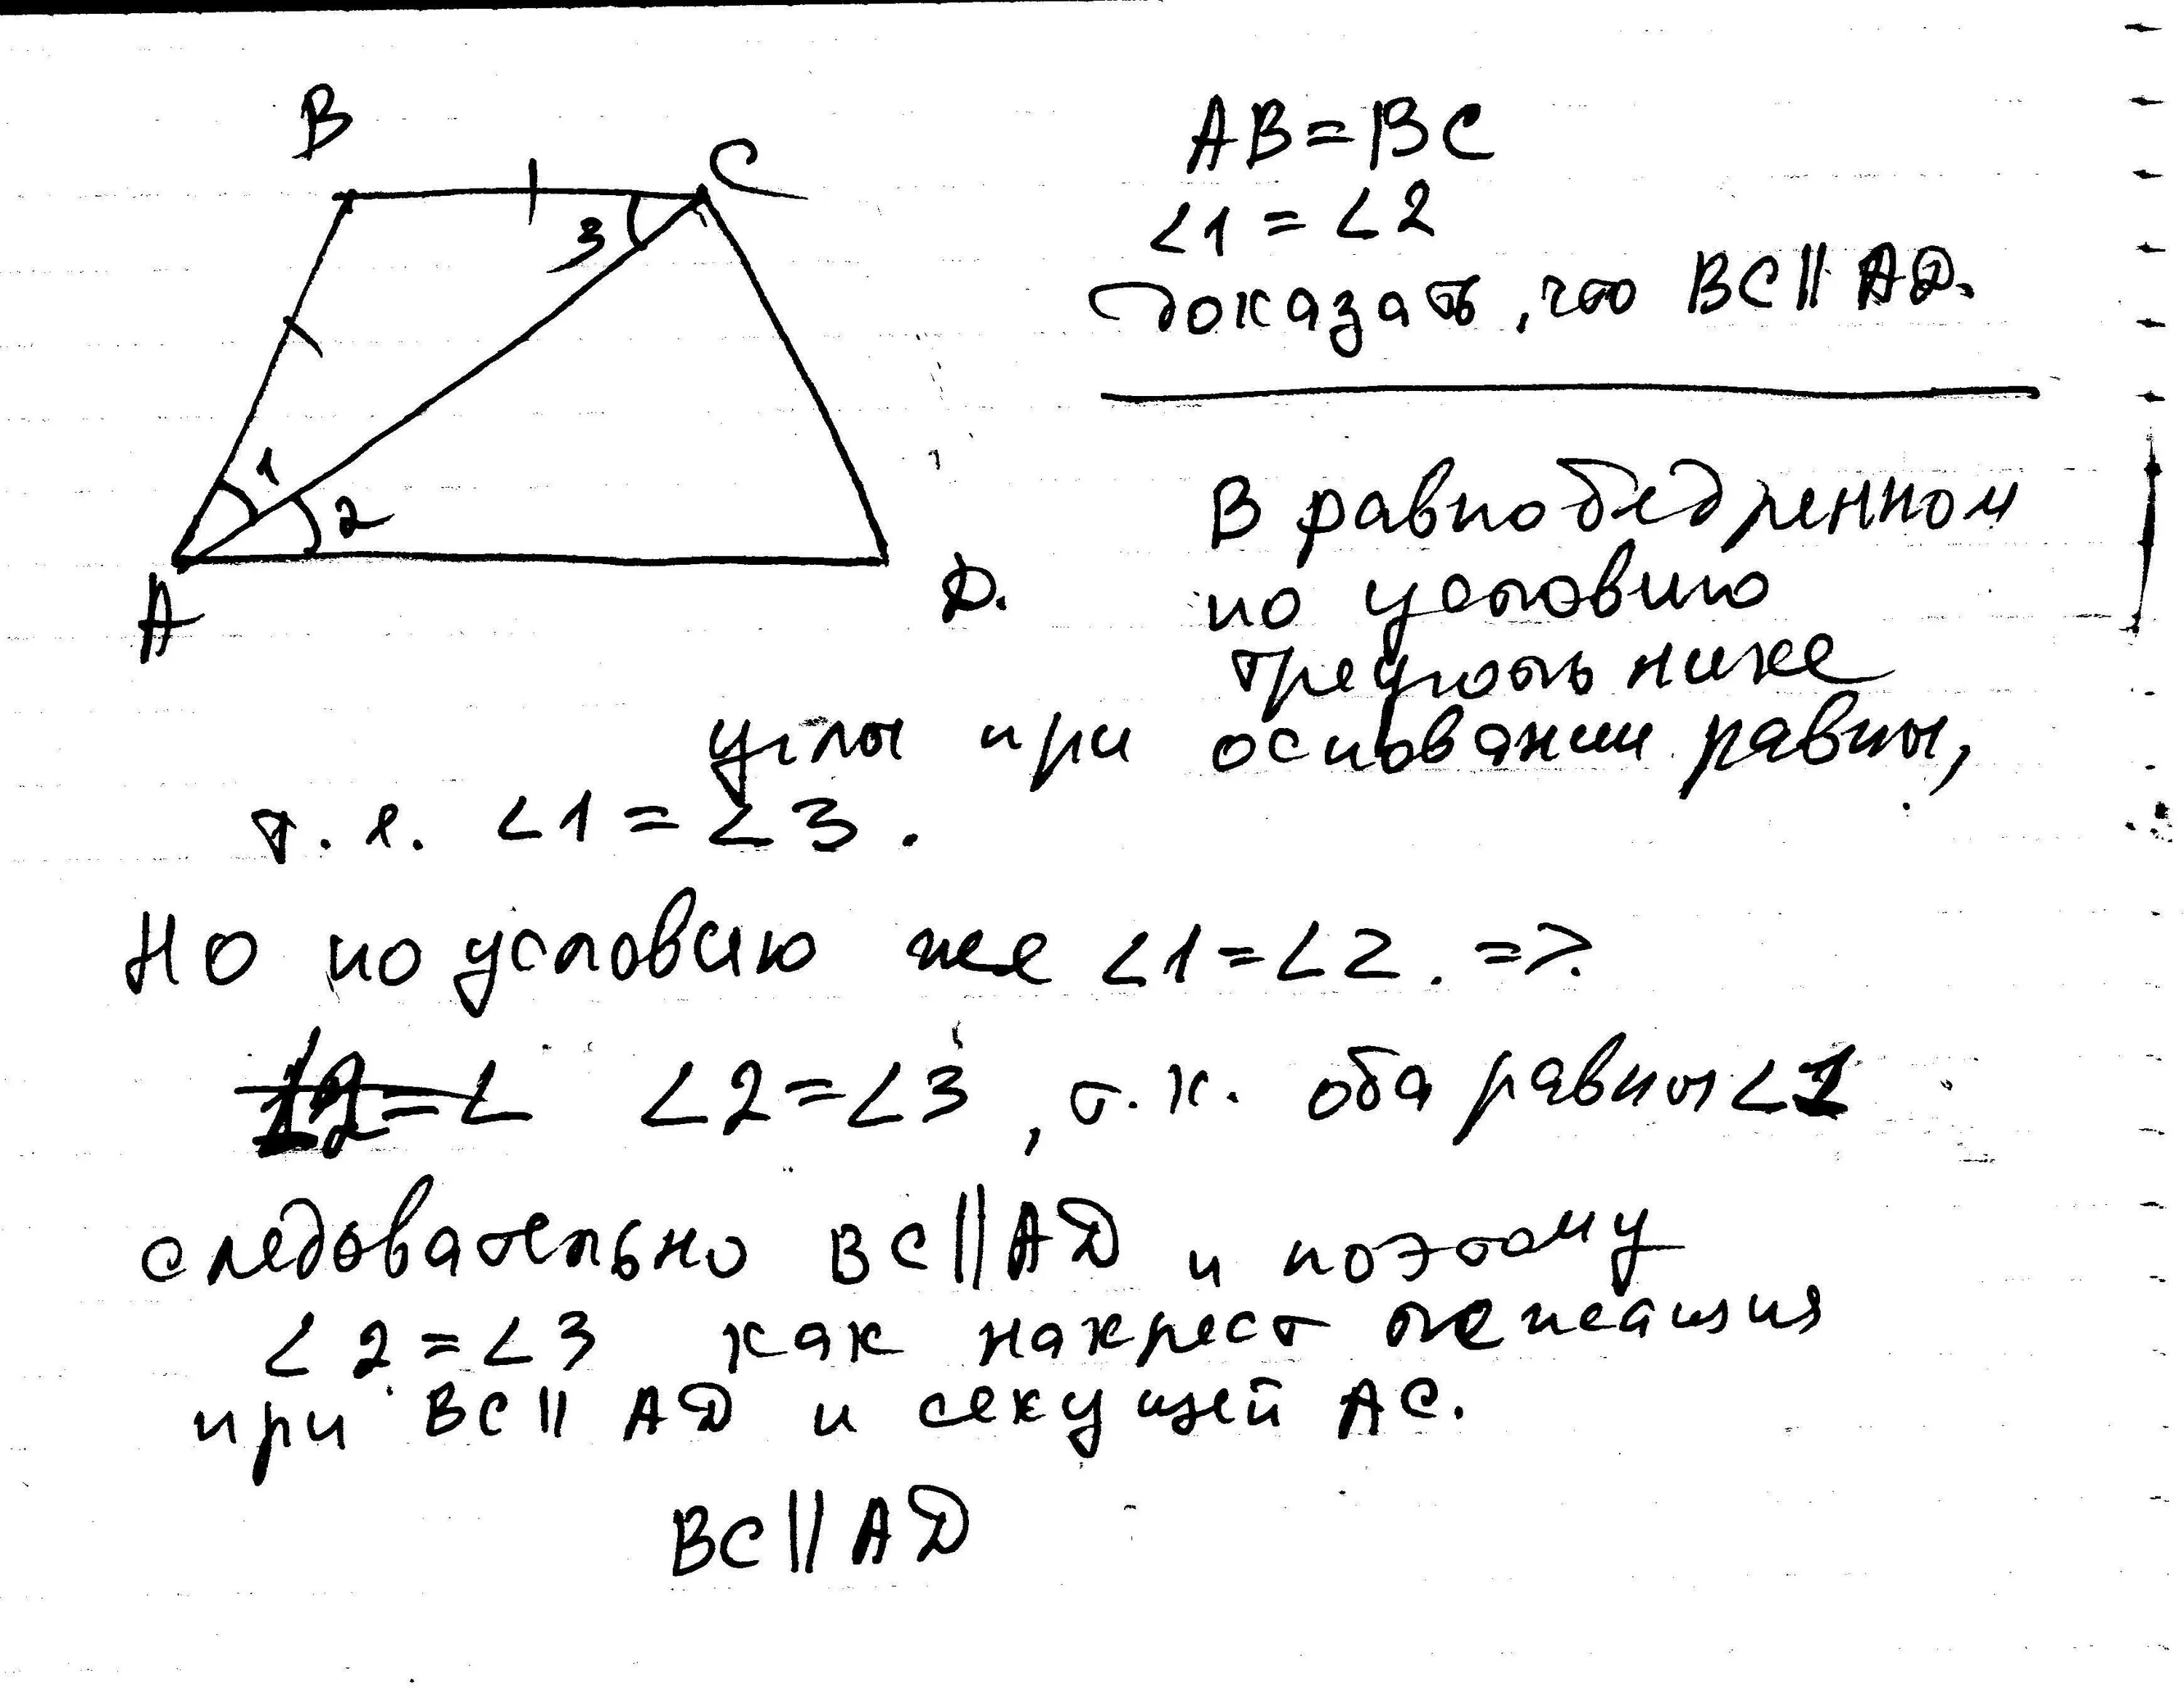 B
C
3
1
2
A
D.
AB = BC
∠1 = ∠2
доказать, что BC || AD.
В равнобедренном
по условию
треугольнике
углы при основании равны,
т. е. ∠1 = ∠3.
Но по условию же ∠1 = ∠2. =>.
∠2 = ∠3, т.к. оба равны ∠1
следовательно BC || AD и поэтому
∠2 = ∠3 как накрест лежащия
при BC || AD и секущей AC.
BC || AD